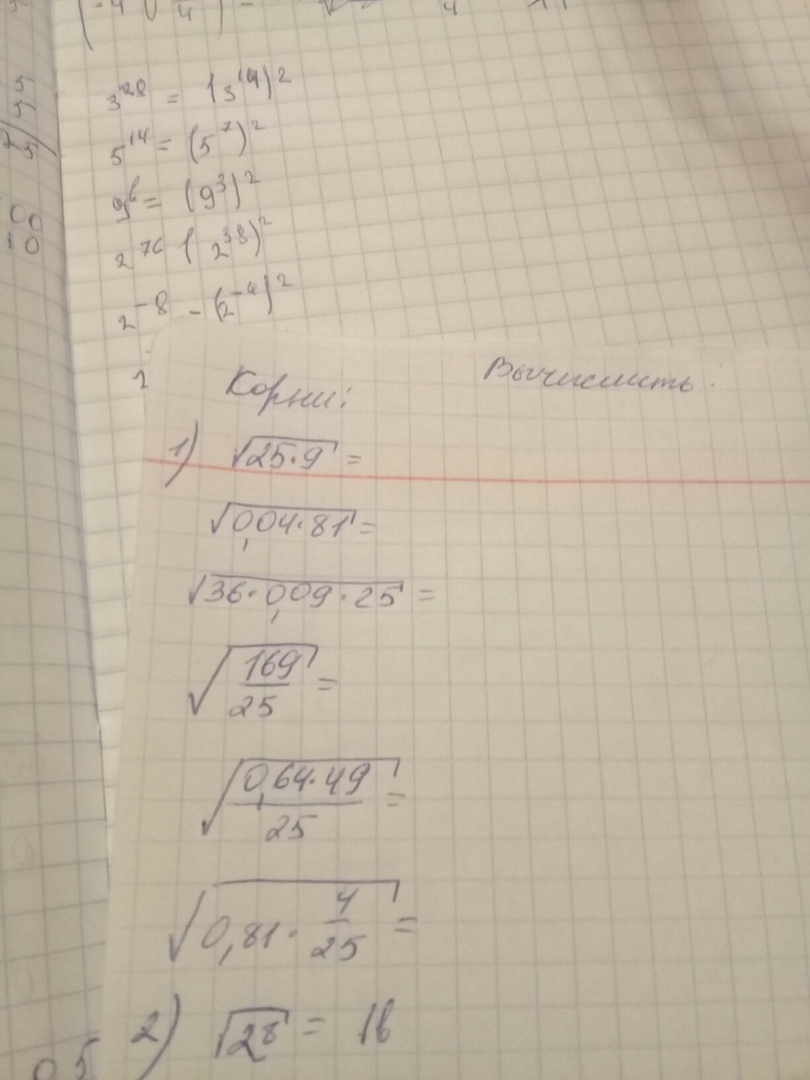 3²⁸ = (3¹⁴)²
5¹⁴ = (5⁷)²
9⁶ = (9³)²
2⁷⁶ (2³⁸)²
2⁻⁸ - (2⁻⁴)²
Корни: Вычислить.
1) √25·9 =
√0,04·81 =
√36·0,09·25 =
√169/25 =
√0,64·49/25 =
√0,81·4/25 =
2) √2⁸ = 16